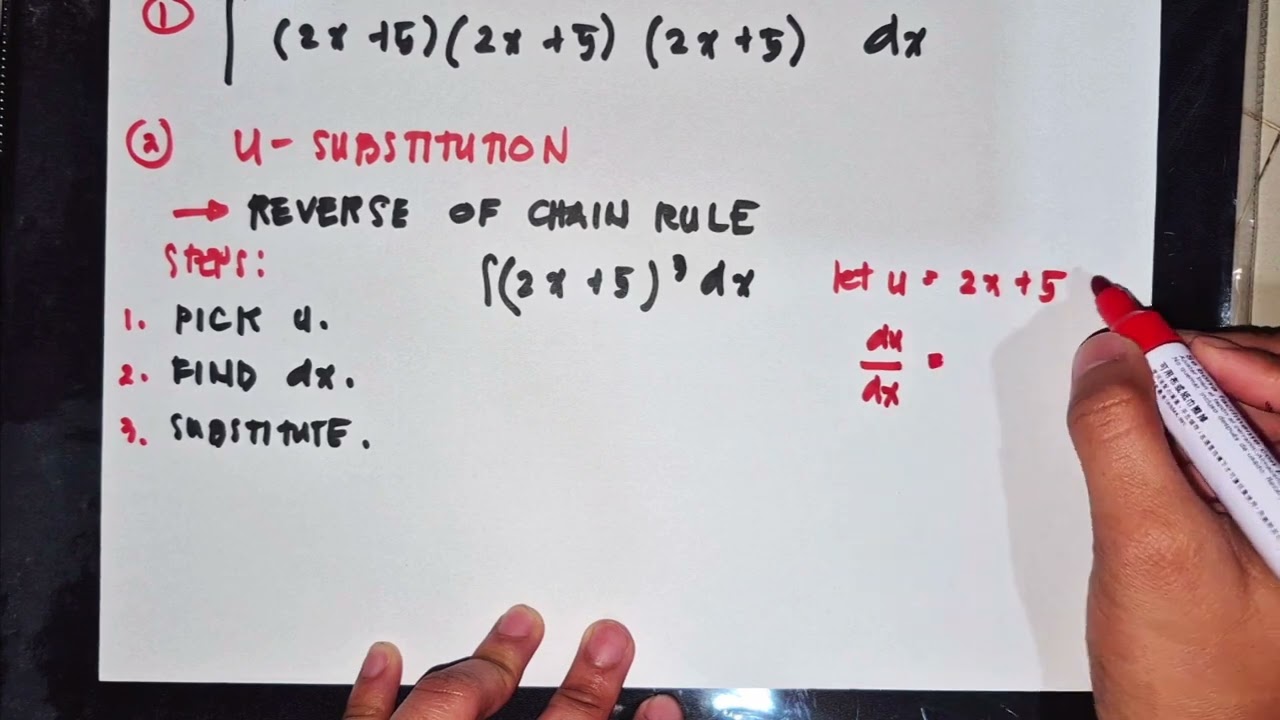 ① ∫ (2x+5)(2x+5) (2x+5) dx
② U- SUBSTITUTION
→ REVERSE OF CHAIN RULE
STEPS:
∫(2x+5)³ dx
let u = 2x+5
1. PICK u.
du/dx =
2. FIND dx.
3. SUBSTITUTE.